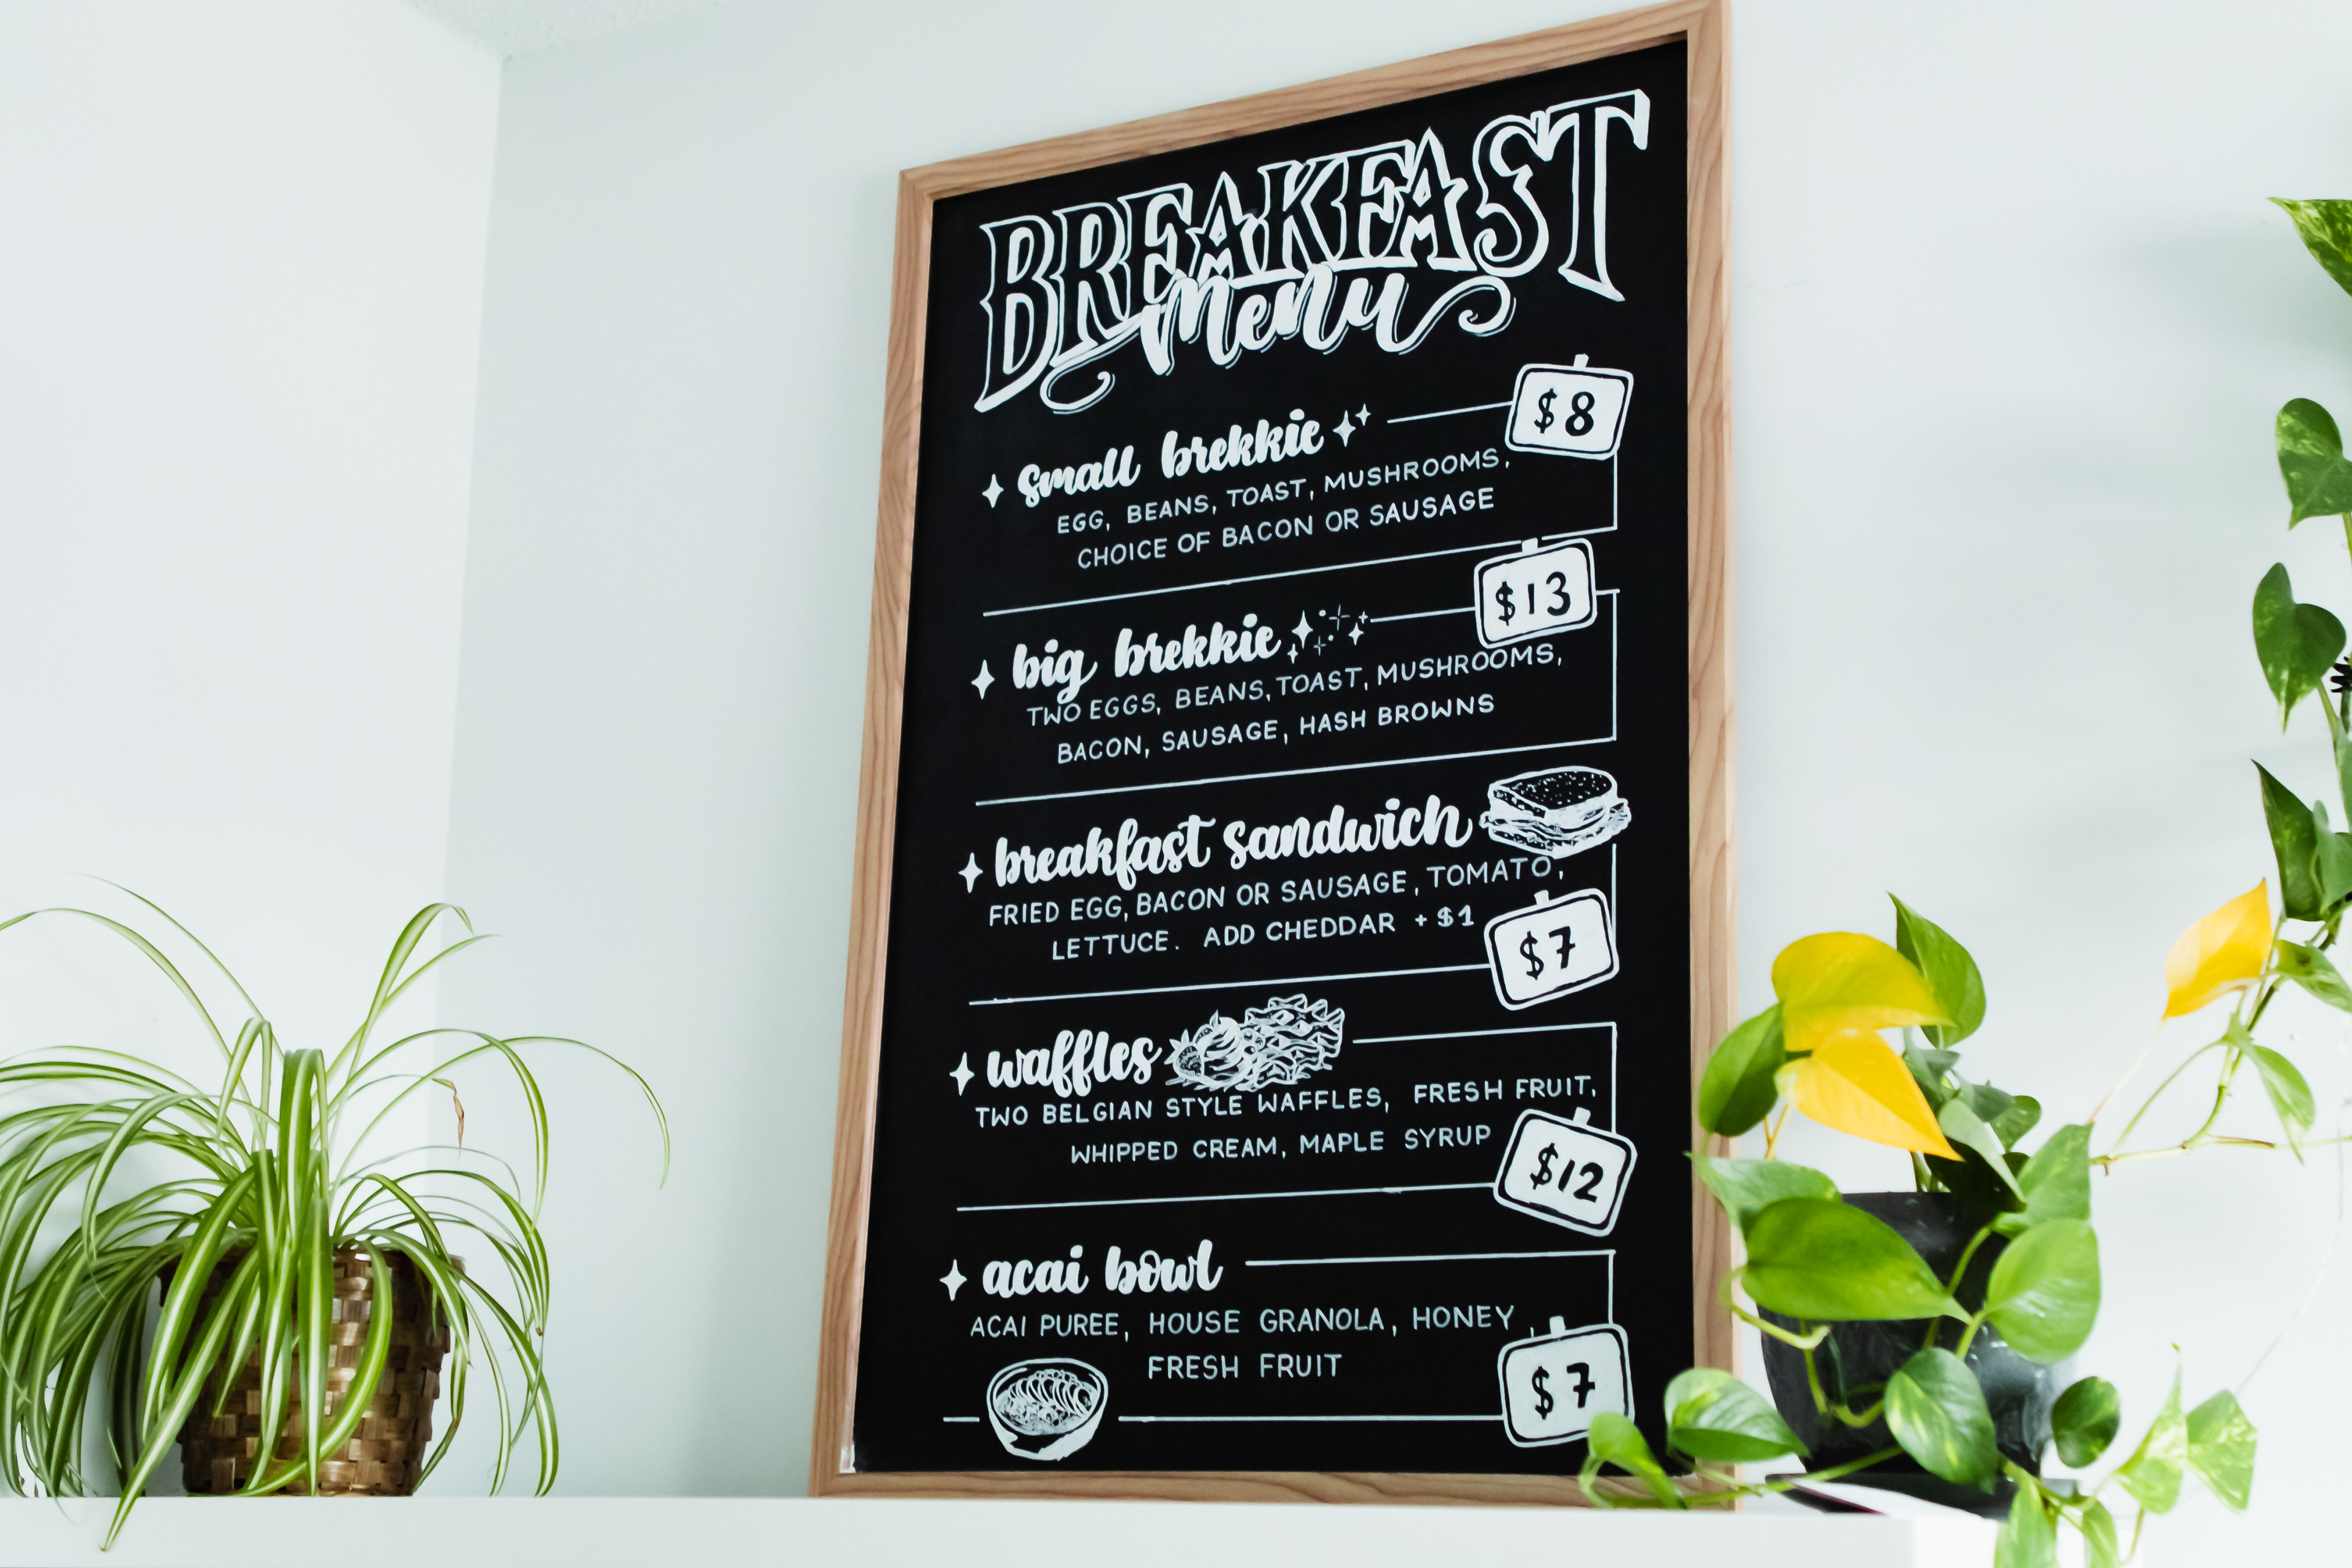 BREAKFAST
menu
small brekkie
$8
EGG, BEANS, TOAST, MUSHROOMS,
CHOICE OF BACON OR SAUSAGE
big brekkie
$13
TWO EGGS, BEANS, TOAST, MUSHROOMS,
BACON, SAUSAGE, HASH BROWNS
breakfast sandwich
FRIED EGG, BACON OR SAUSAGE, TOMATO,
LETTUCE. ADD CHEDDAR +$1
$7
waffles
TWO BELGIAN STYLE WAFFLES, FRESH FRUIT,
WHIPPED CREAM, MAPLE SYRUP
$12
acai bowl
ACAI PUREE, HOUSE GRANOLA, HONEY,
FRESH FRUIT
$7